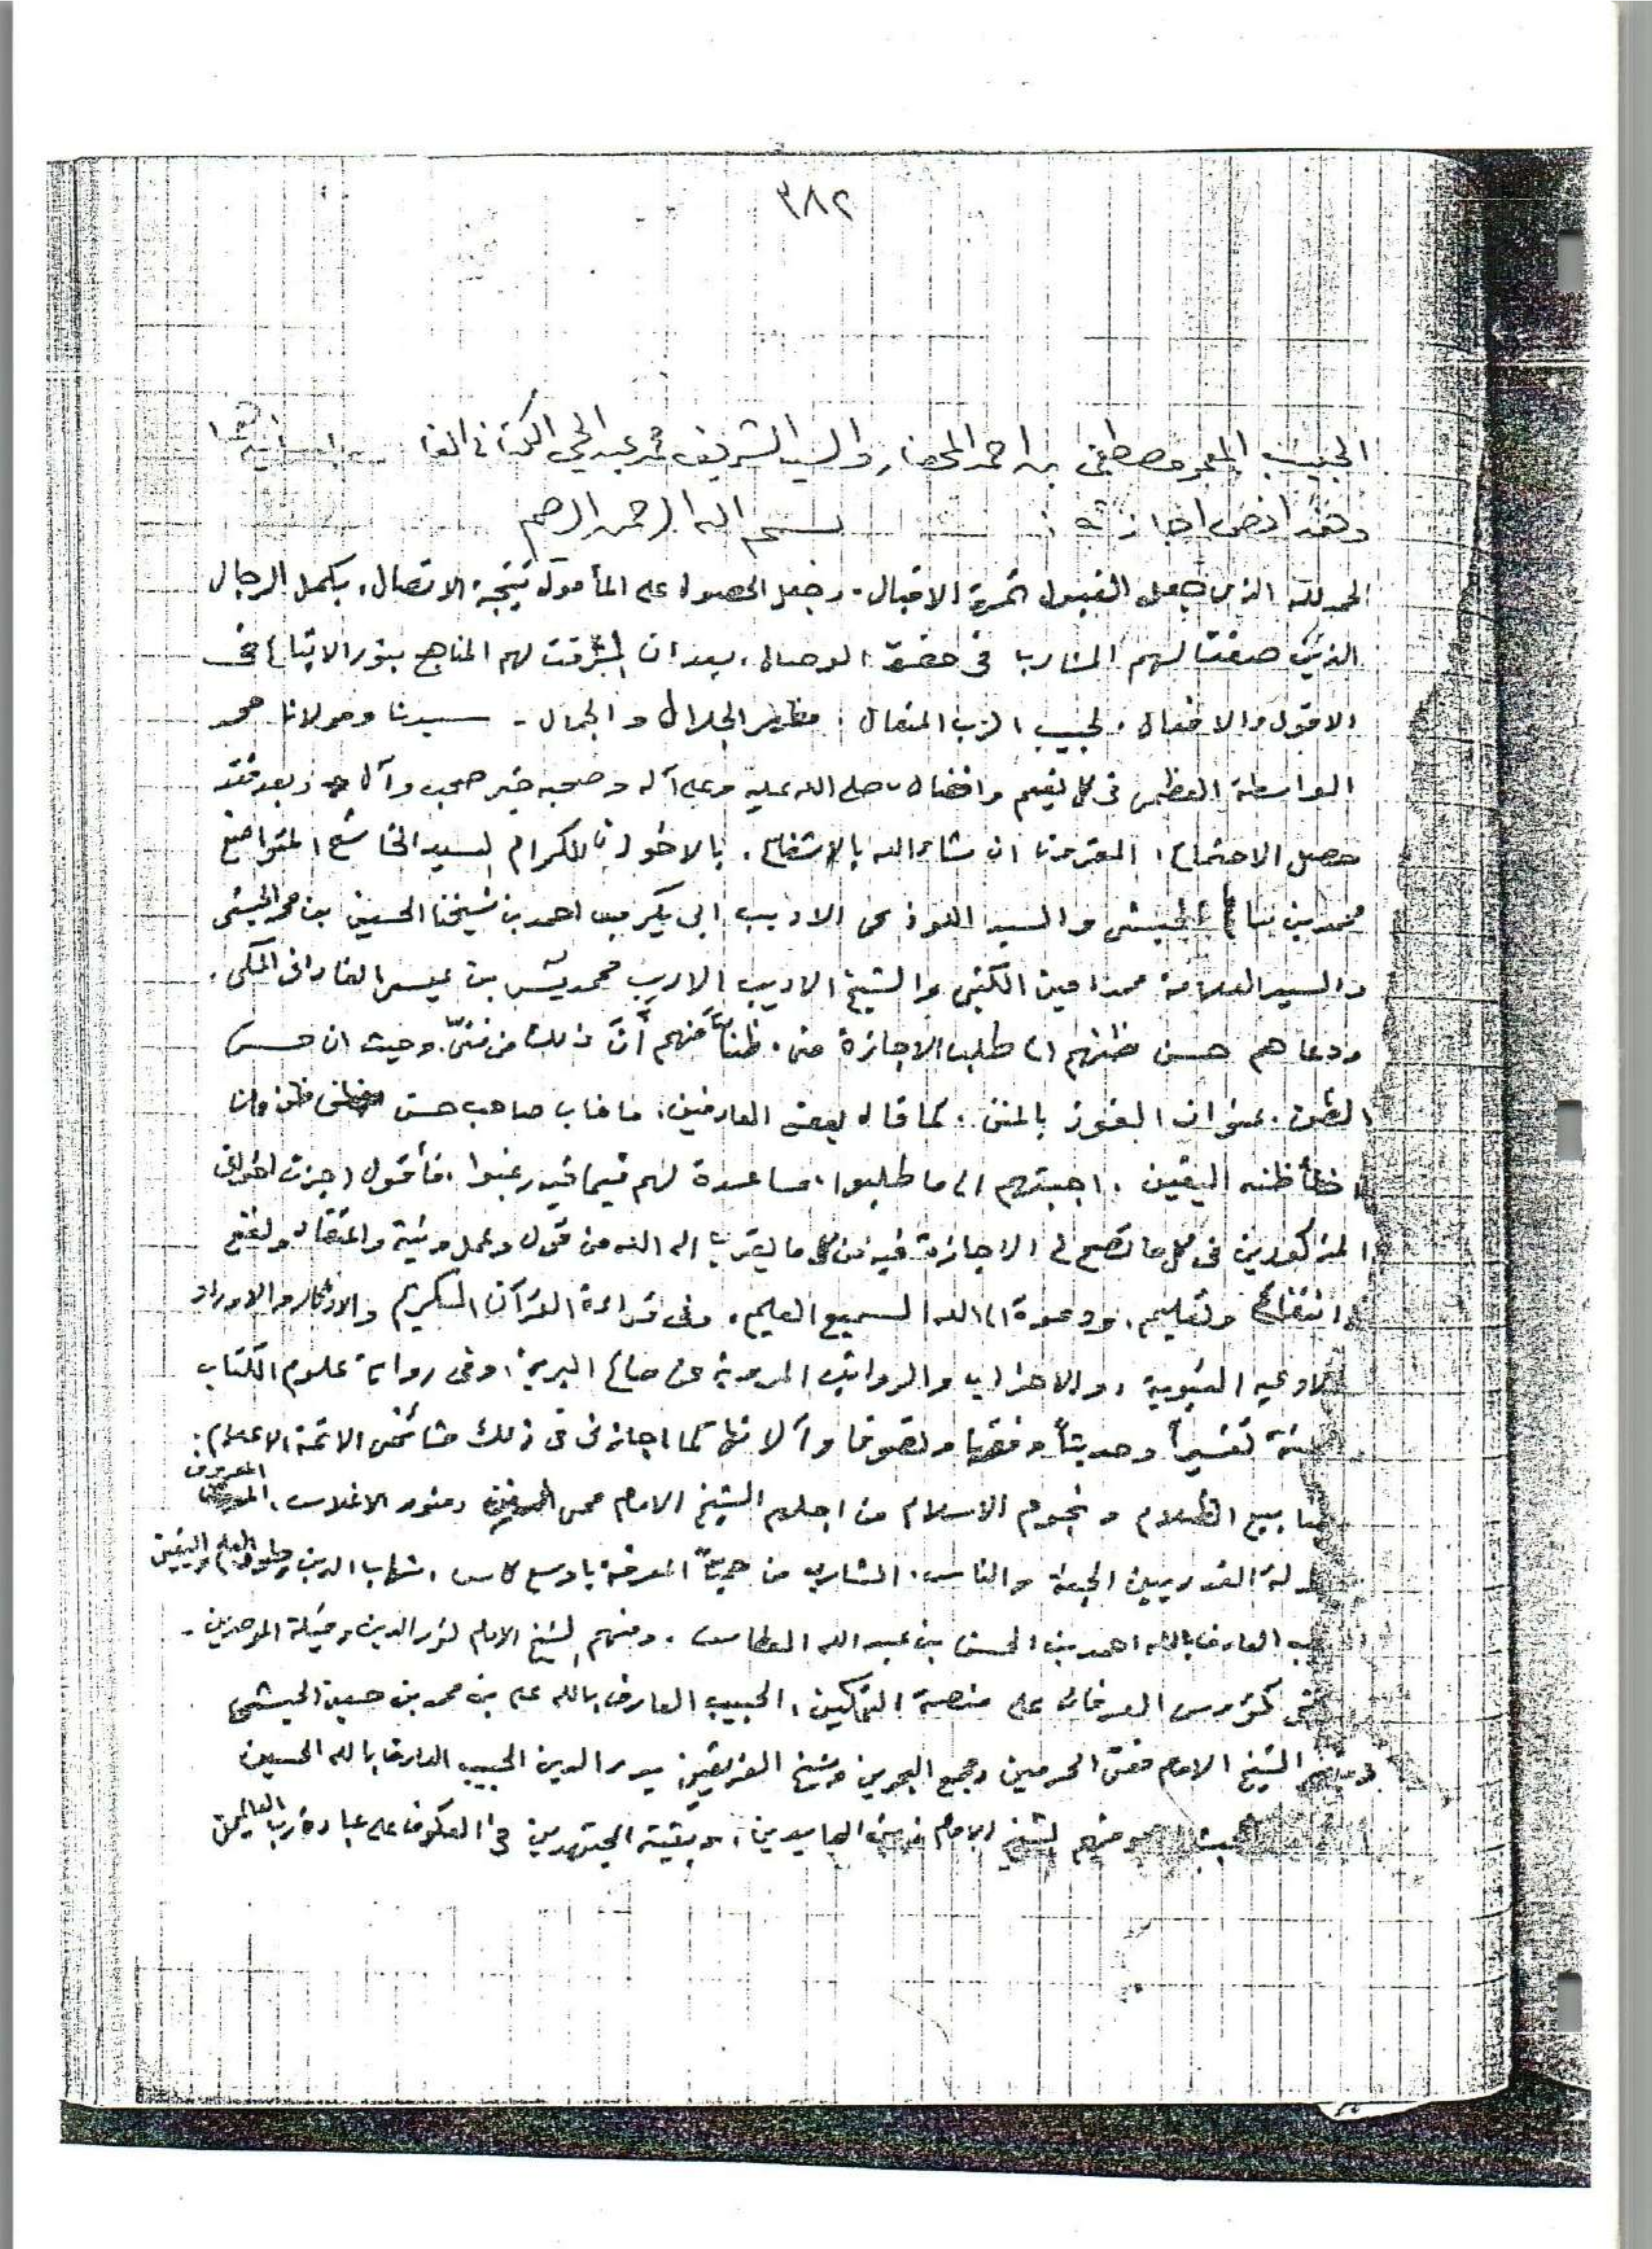 ٣٨٢
الحبيب المعمر مصطفى بن احمد المحضار والسيد الشريف محمد عبد الحي الكتاني
وهذا نص اجازته : بسم الله الرحمن الرحيم
الحمد لله الذي جعل القبول ثمرة الاقبال. وجعل الحصول على المأمول نتيجة الاتصال، بكمل الرجال
الذين صفت لهم المشارب في حضرة الوصال، بعد ان اشرقت لهم المناهج بنور الاتباع في
الاقوال والافعال. لحبيب الرب المتعال، مظهر الجلال والجمال - سيدنا ومولانا محمد
الواسطة العظمى في كل نعيم وافضال صلى الله عليه وعلى آله وصحبه خير صحب وآل وبعد فقد
حصل الاجتماع، المقرون ان شاء الله بالانتفاع، بالاخوان الكرام السيد الخاشع المتواضع
محمد بن سالم الحبشي والسيد اللوذعي الاديب ابي بكر بن احمد بن شيخنا الحسين بن محمد الحبشي
والسيد العلامة محمد امين الكتبي والشيخ الاديب الاريب محمد يٰس بن عيسى الفاداني المكي،
ودعاهم حسن ظنهم الى طلب الاجازة مني. ظناً منهم أنَّ ذلك من فنيّ. وحيث ان حسن
الظن. عنوان الفوز بالمنن. كما قال بعض العارفين، ما خاب صاحب حسن ظن وان
اخطأ ظنه اليقين. اجبتهم الى ما طلبوا، مساعدة لهم فيما فيه رغبوا، فأقول اجزت اخواني
المذكورين في كل ما تصح لي الاجازة فيه من كل ما يقرب الى الله من قول وعمل ونية واعتقاد ونفع
وانتفاع وتعليم، ودعوة الى الله السميع العليم، وفي قراءة القرآن الكريم والاذكار والاوراد
والادعيه النبوية، والاحزاب والرواتب المروية عن صالح البرية، وفي رواية علوم الكتاب
والسنة تفسيراً وحديثاً وفقها وتصوفا وآلاتها كما اجازني في ذلك مشائخي الائمة الاعلام،
مصابيح الظلام ونجوم الاسلام من اجلهم الشيخ الامام محي ومنور الاغلاس، المعروف
القدر بين الجنة والناس، الشارب من حميّا المعرفة باوسع كاس، شهاب الدين والعلم واليقين
الحبيب العارف بالله احمد بن الحسن بن عبد الله العطاس. ومنهم الشيخ الامام نور الدين وقبلة الموحدين -
كؤوس العرفان على منصة التمكين، الحبيب العارف بالله علي بن محمد بن حسين الحبشي
ومنهم الشيخ الامام مفتي الحرمين ومجمع البحرين وشيخ الفريقين بدر الدين الحبيب العارف بالله الحسين
ومنهم الشيخ الامام زين العابدين، وبقية المجتهدين في العكوف على عبادة رب العالمين